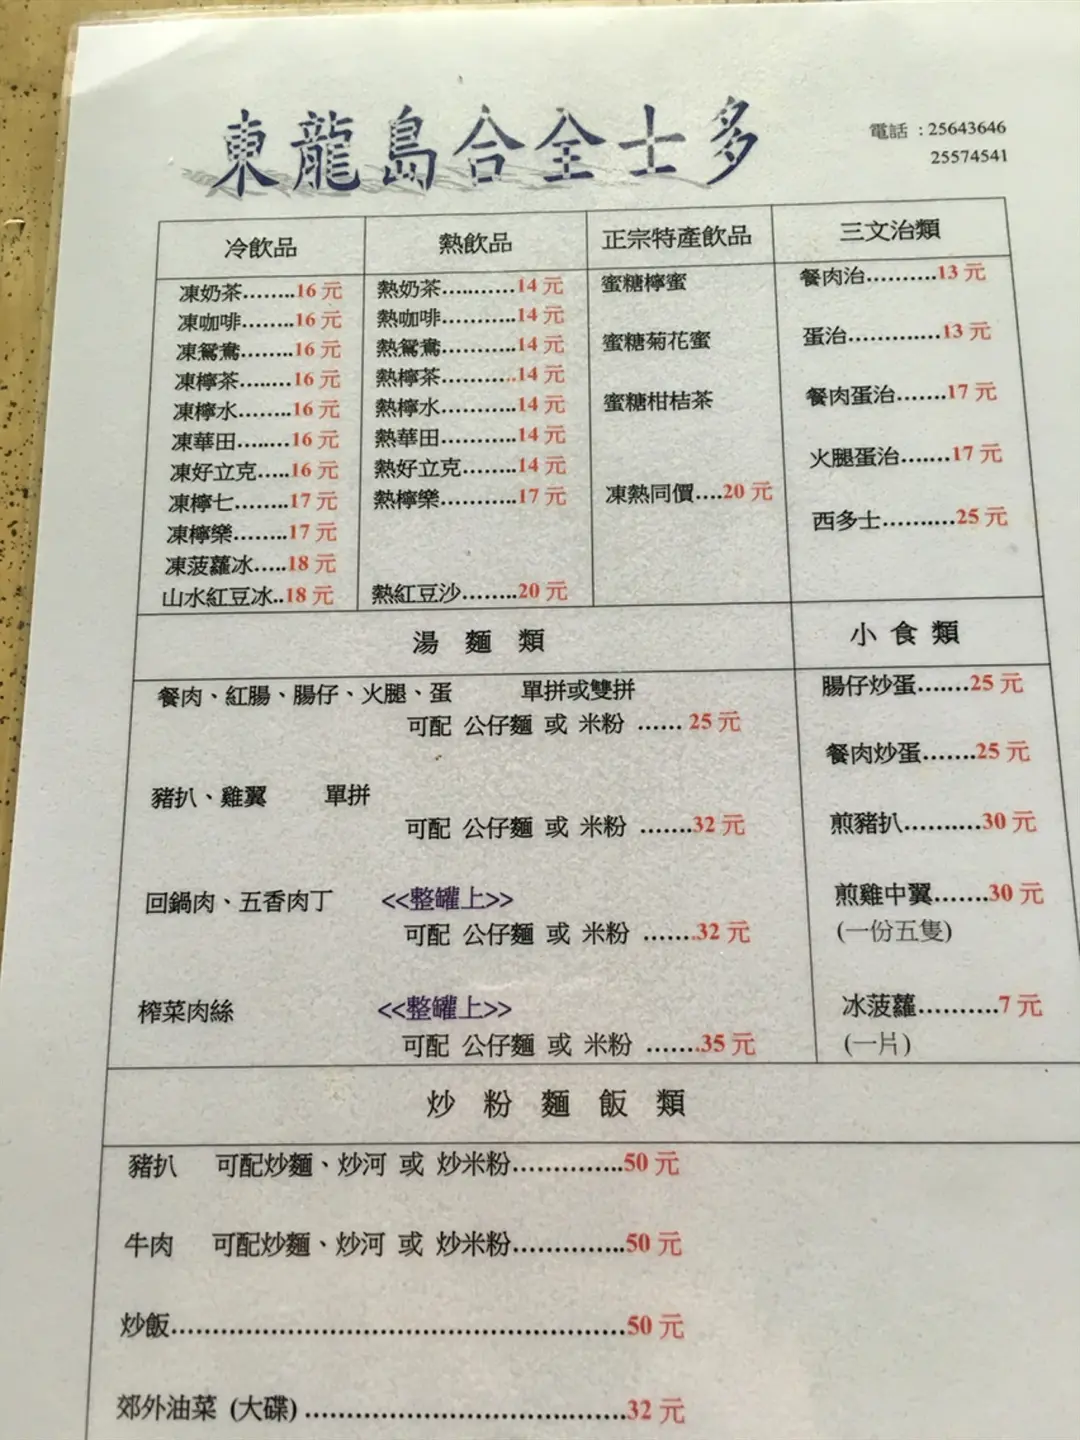 東龍島合全士多
電話：25643646
25574541
冷飲品
凍奶茶........16 元
凍咖啡........16 元
凍鴛鴦........16 元
凍檸茶........16 元
凍檸水........16 元
凍華田........16 元
凍好立克.....16 元
凍檸七........17 元
凍檸樂........17 元
凍菠蘿冰.....18 元
山水紅豆冰..18 元
熱飲品
熱奶茶...........14 元
熱咖啡...........14 元
熱鴛鴦...........14 元
熱檸茶...........14 元
熱檸水...........14 元
熱華田...........14 元
熱好立克........14 元
熱檸樂...........17 元
熱紅豆沙........20 元
正宗特產飲品
蜜糖檸蜜
蜜糖菊花蜜
蜜糖柑桔茶
凍熱同價....20 元
三文治類
餐肉治..........13 元
蛋治.............13 元
餐肉蛋治.......17 元
火腿蛋治.......17 元
西多士..........25 元
湯 麵 類
餐肉、紅腸、腸仔、火腿、蛋 單拼或雙拼
可配 公仔麵 或 米粉 ...... 25 元
豬扒、雞翼 單拼
可配 公仔麵 或 米粉 .......32 元
回鍋肉、五香肉丁 <<整罐上>>
可配 公仔麵 或 米粉 .......32 元
榨菜肉絲 <<整罐上>>
可配 公仔麵 或 米粉 .......35 元
小 食 類
腸仔炒蛋.......25 元
餐肉炒蛋.......25 元
煎豬扒..........30 元
煎雞中翼.......30 元
(一份五隻)
冰菠蘿..........7 元
(一片)
炒 粉 麵 飯 類
豬扒 可配炒麵、炒河 或 炒米粉..............50 元
牛肉 可配炒麵、炒河 或 炒米粉..............50 元
炒飯.........................................................50 元
郊外油菜 (大碟) ........................................32 元